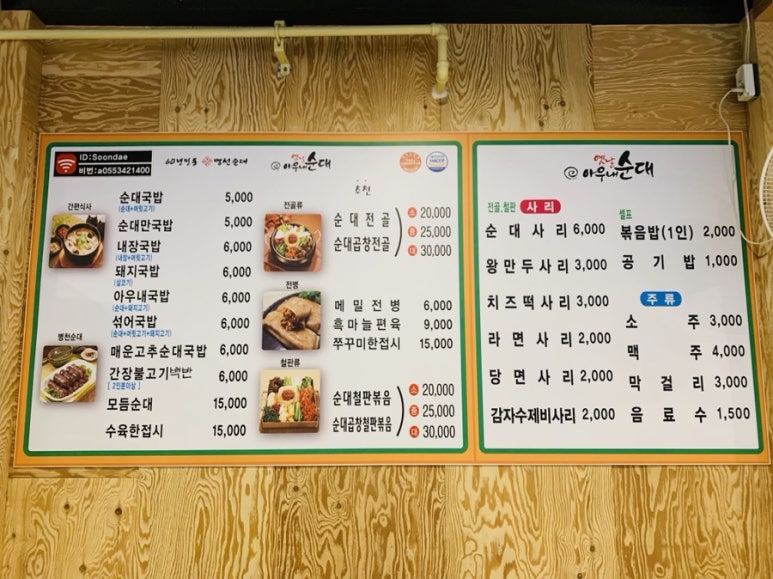 ID:Soondae
비번:a0553421400
60년전통 병천순대
옛날
아우내순대
HACCP
간편식사
순대국밥 5,000
(순대+머릿고기)
순대만국밥 5,000
내장국밥 6,000
(내장+머릿고기)
돼지국밥 6,000
(살코기)
아우내국밥 6,000
(순대+돼지고기)
섞어국밥 6,000
(순대+머릿고기+돼지고기)
병천순대
매운고추순대국밥 6,000
간장불고기백반 6,000
[ 2인분이상 ]
모듬순대 15,000
수육한접시 15,000
추천
전골류
순대전골
순대곱창전골
소 20,000
중 25,000
대 30,000
전병
메밀전병 6,000
흑마늘편육 9,000
쭈꾸미한접시 15,000
철판류
순대철판볶음
순대곱창철판볶음
소 20,000
중 25,000
대 30,000
옛날
아우내순대
전골,철판 사리
순대사리 6,000
왕만두사리 3,000
치즈떡사리 3,000
라면사리 2,000
당면사리 2,000
감자수제비사리 2,000
셀프
볶음밥(1인) 2,000
공기밥 1,000
주류
소주 3,000
맥주 4,000
막걸리 3,000
음료수 1,500